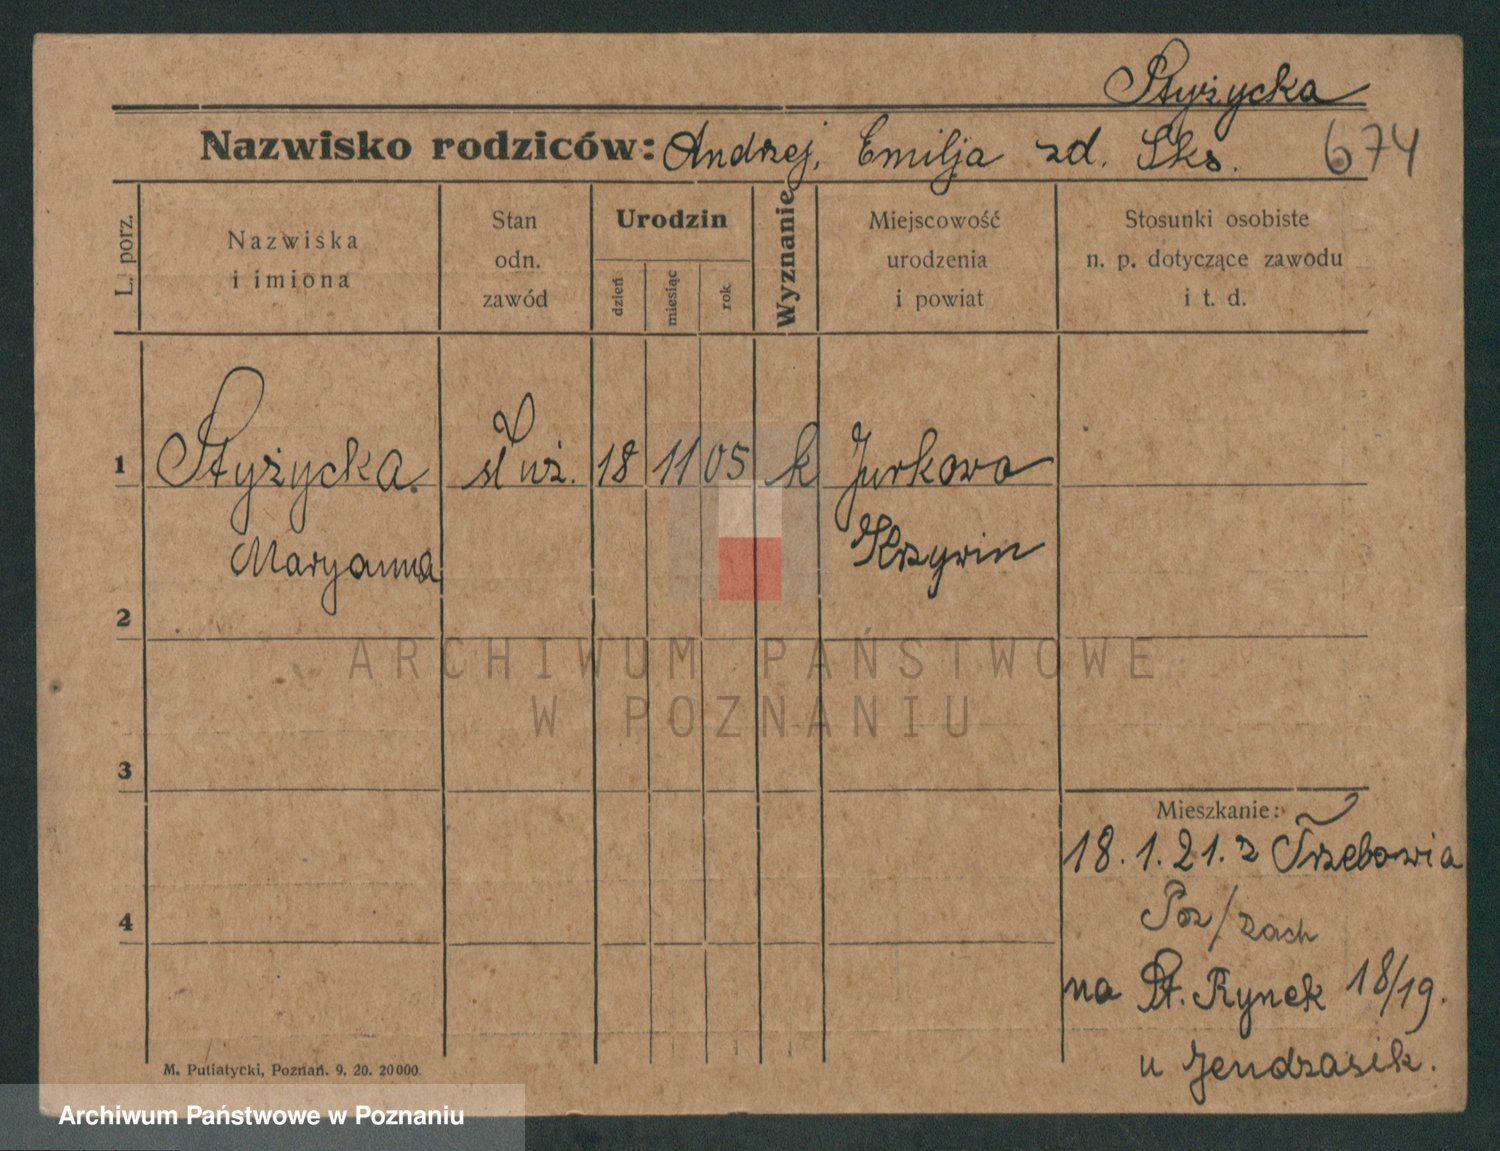 Styżycka
Nazwisko rodziców: Andrzej, Emilja zd. Sks.
674
L. porz.
Nazwiska
i imiona
Stan
odn.
zawód
Urodzin
dzień
miesiąc
rok
Wyznanie
Miejscowość
urodzenia
i powiat
Stosunki osobiste
n. p. dotyczące zawodu
i t. d.
1 Styżycka służ. 18 11 05 k Jurkowo
Maryanna Krzywin
2
ARCHIWUM PAŃSTWOWE
W POZNANIU
3
Mieszkanie:
18.1.21. z Trzebowia
4
Poz/zach
na St. Rynek 18/19.
u Jendrasik.
M. Putiatycki, Poznań. 9. 20. 20000.
Archiwum Państwowe w Poznaniu